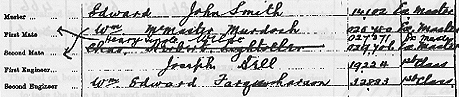 Master Edward John Smith 14102 Ex. Master
First Mate Wm McMaster Murdoch 025450 Ex. Master
Henry Tingle Wilde 027371 Ex. Master
Second Mate Chas. Herbert Lightoller 029706 Ex. Master
First Engineer Joseph Bell 19224 1st Class
Second Engineer Wm Edward Farquharson 32883 1st Class